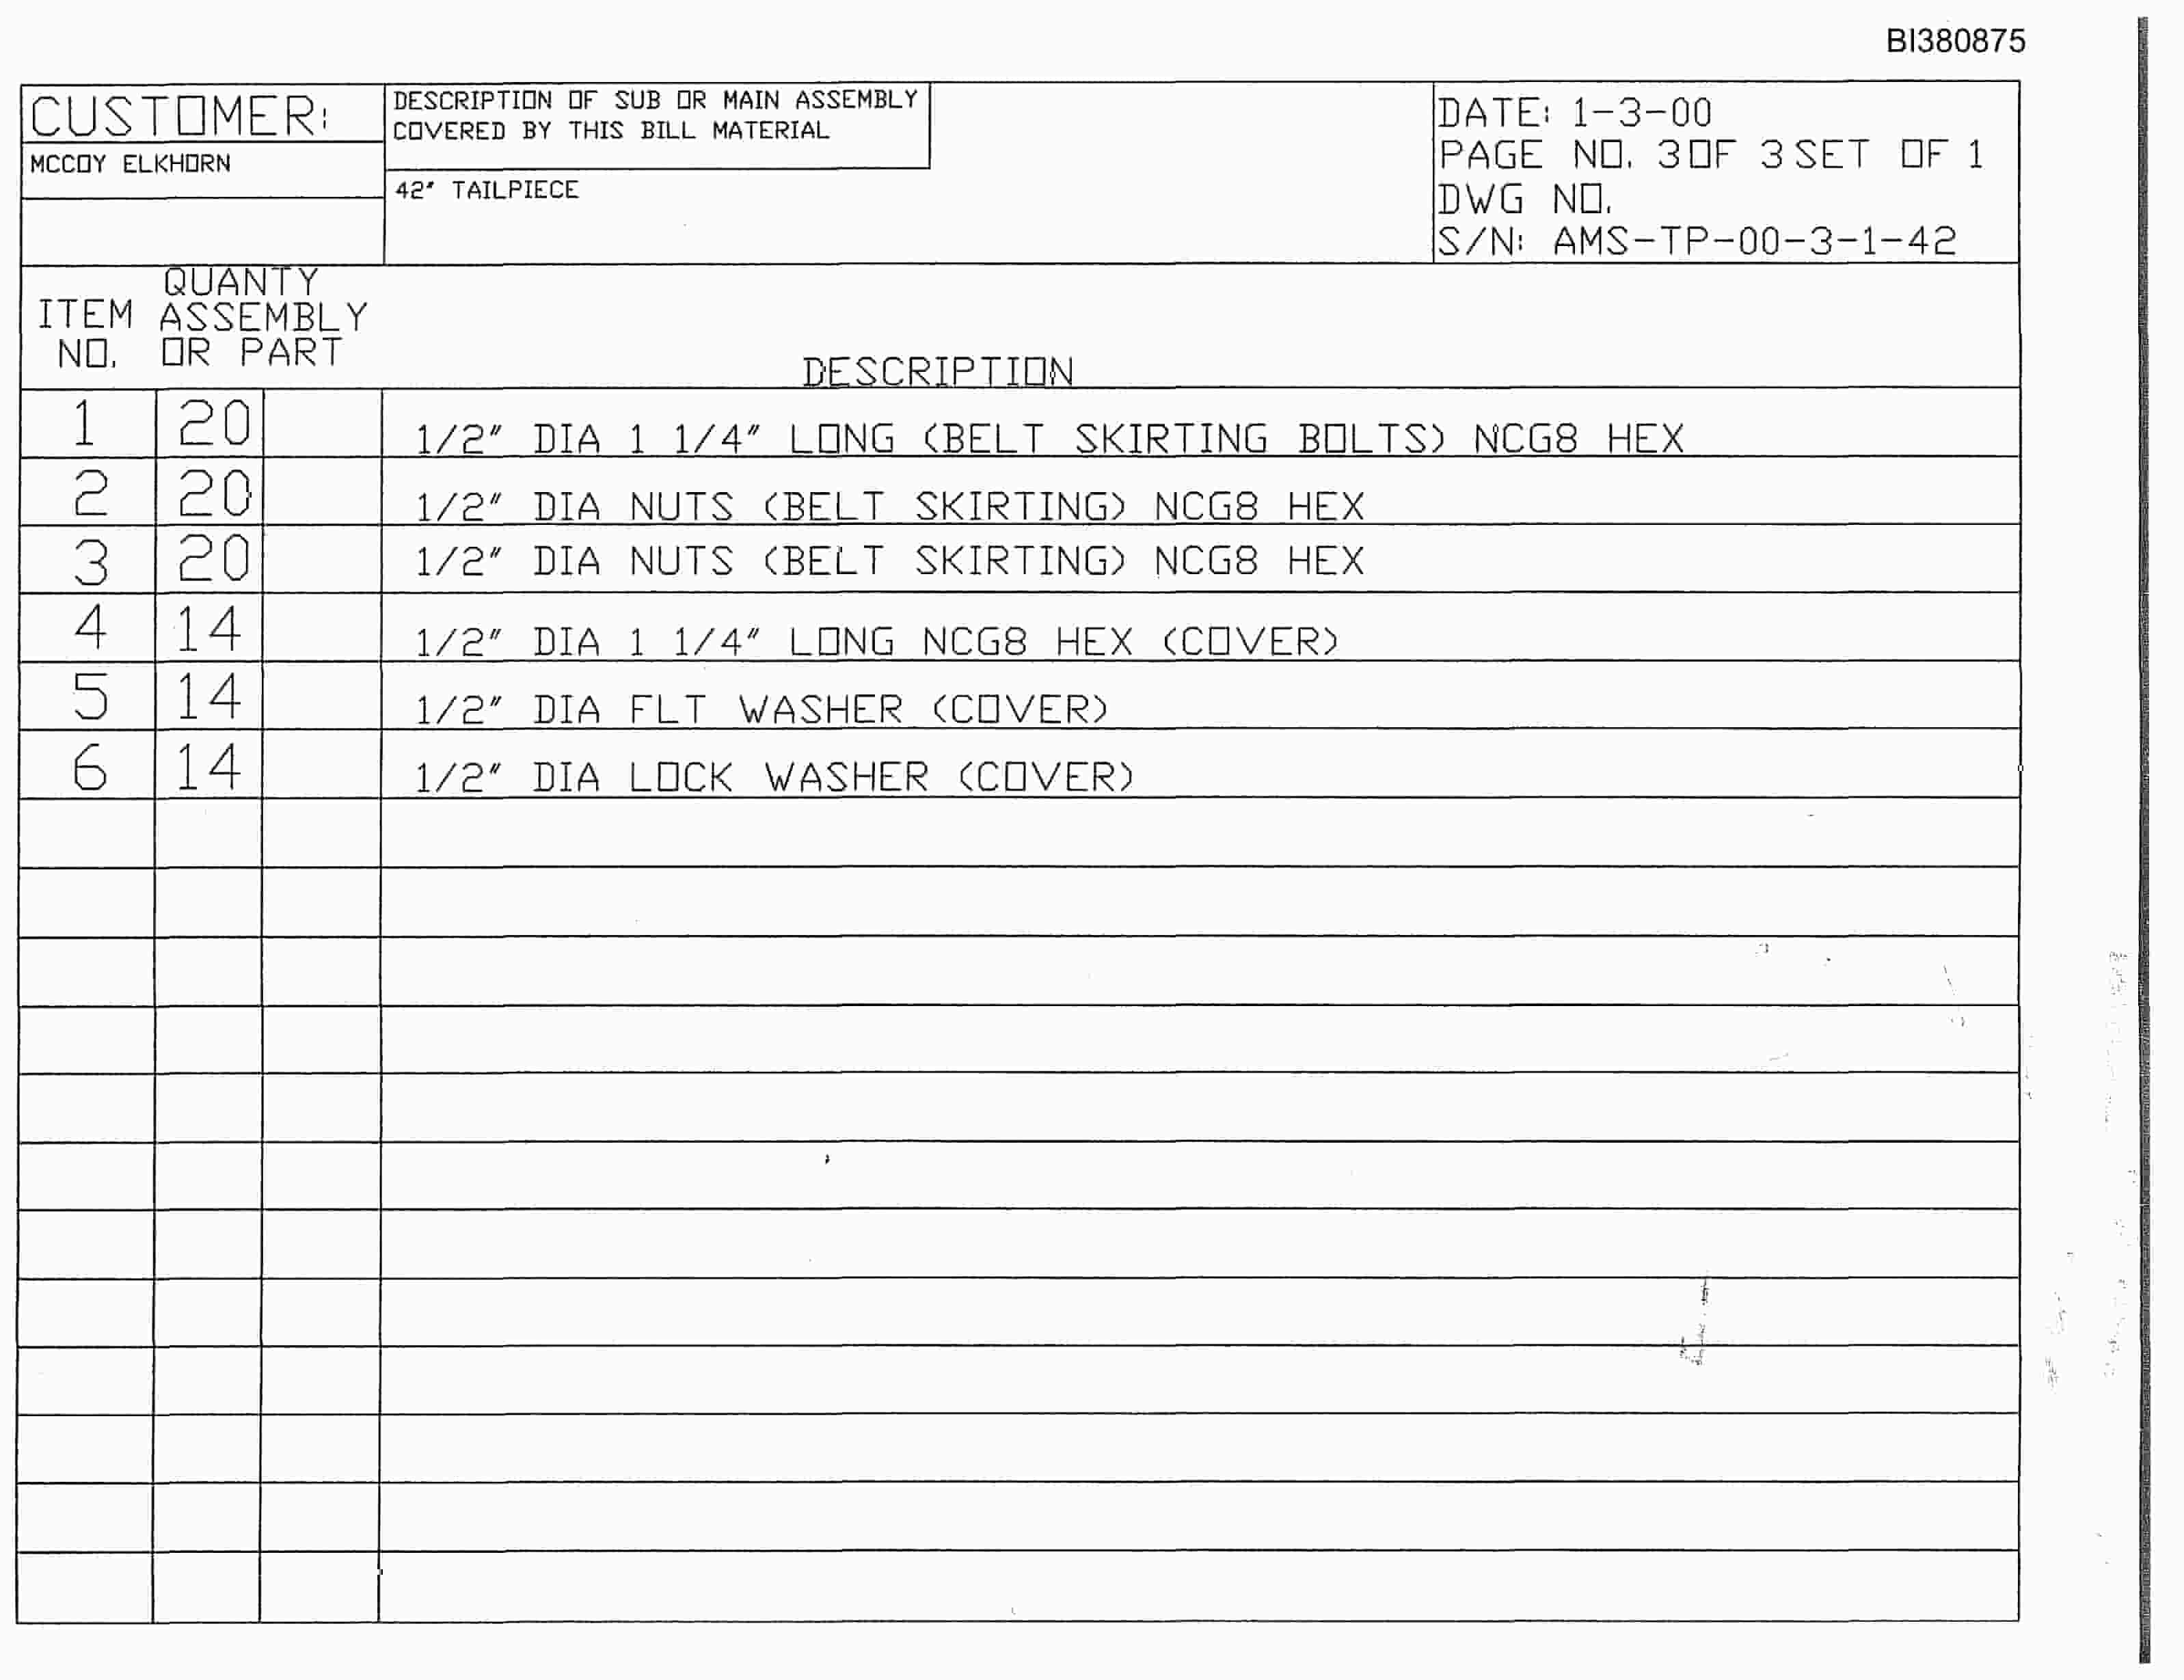 BI380875
CUSTOMER:
MCCOY ELKHORN
DESCRIPTION OF SUB OR MAIN ASSEMBLY
COVERED BY THIS BILL MATERIAL
42" TAILPIECE
DATE: 1-3-00
PAGE NO. 3 OF 3 SET OF 1
DWG NO.
S/N: AMS-TP-00-3-1-42
ITEM NO.
QUANTY ASSEMBLY OR PART
DESCRIPTION
1 20 1/2" DIA 1 1/4" LONG (BELT SKIRTING BOLTS) NCG8 HEX
2 20 1/2" DIA NUTS (BELT SKIRTING) NCG8 HEX
3 20 1/2" DIA NUTS (BELT SKIRTING) NCG8 HEX
4 14 1/2" DIA 1 1/4" LONG NCG8 HEX (COVER)
5 14 1/2" DIA FLT WASHER (COVER)
6 14 1/2" DIA LOCK WASHER (COVER)